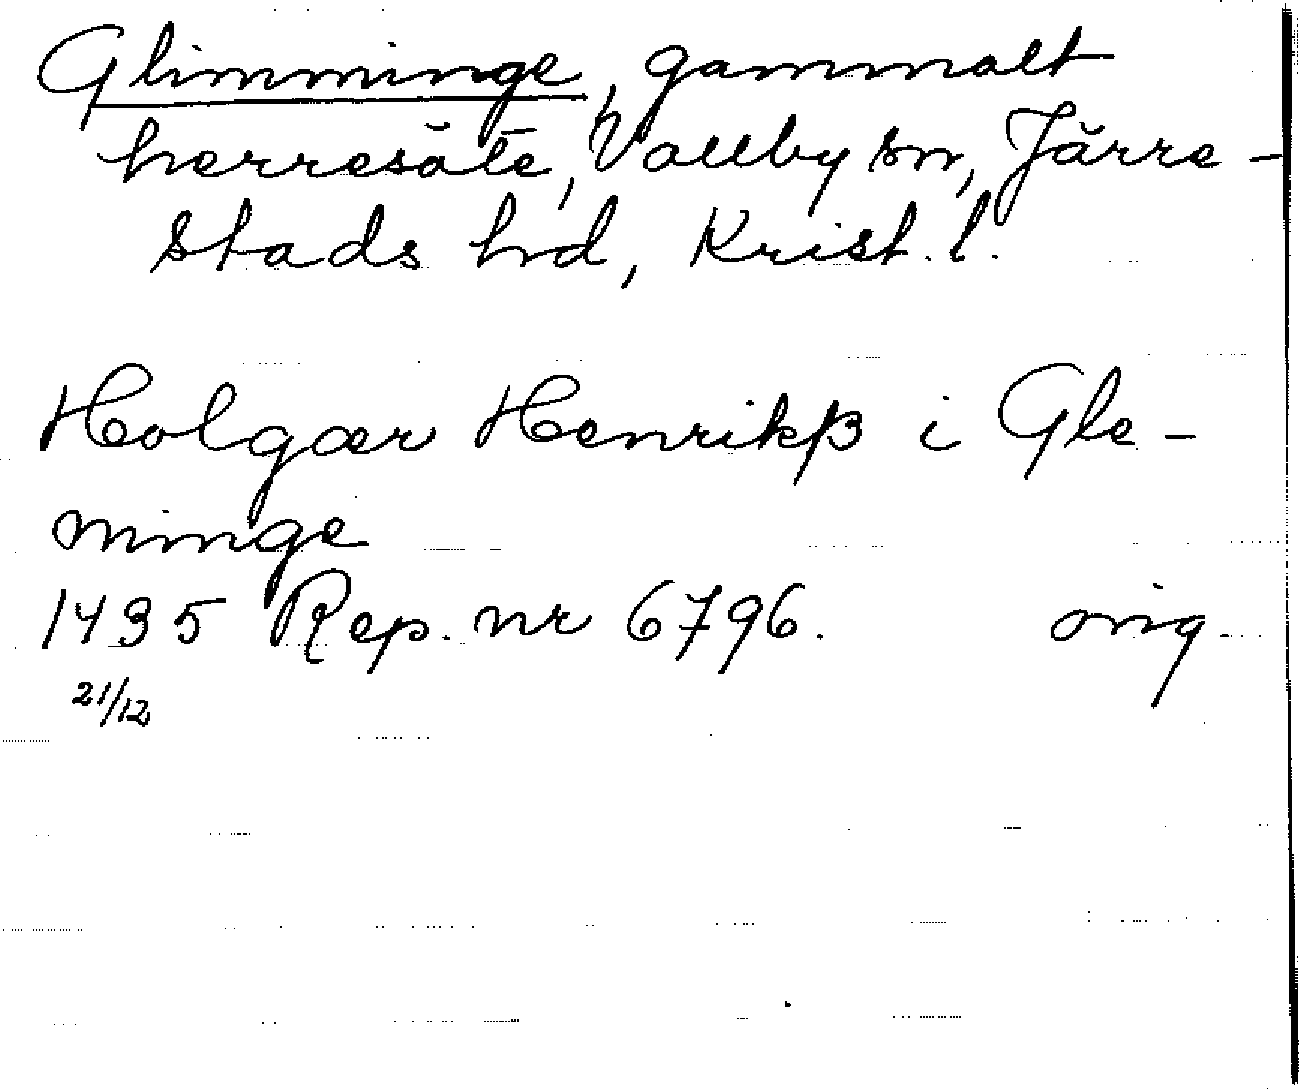 Glimminge, gammalt
herresäte, Vallby sn, Järre-
stads hd, Krist. l.
Holgær Henrikß i Gle-
minge
1495 Rep. nr 6796. orig.
21/12